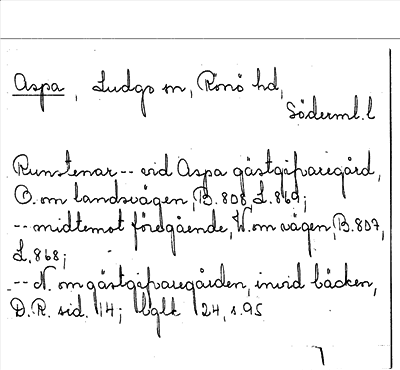 Aspa, Ludgo sn, Rönö hd,
Söderml. l
Runstenar -- vid Aspa gästgifvaregård,
Ö. om landsvägen, B. 808, L. 869;
-- midtemot föregående, V. om vägen, B. 807,
L. 868;
-- N. om gästgifvaregården, invid bäcken,
D.R. sid. 14; 24, s. 95